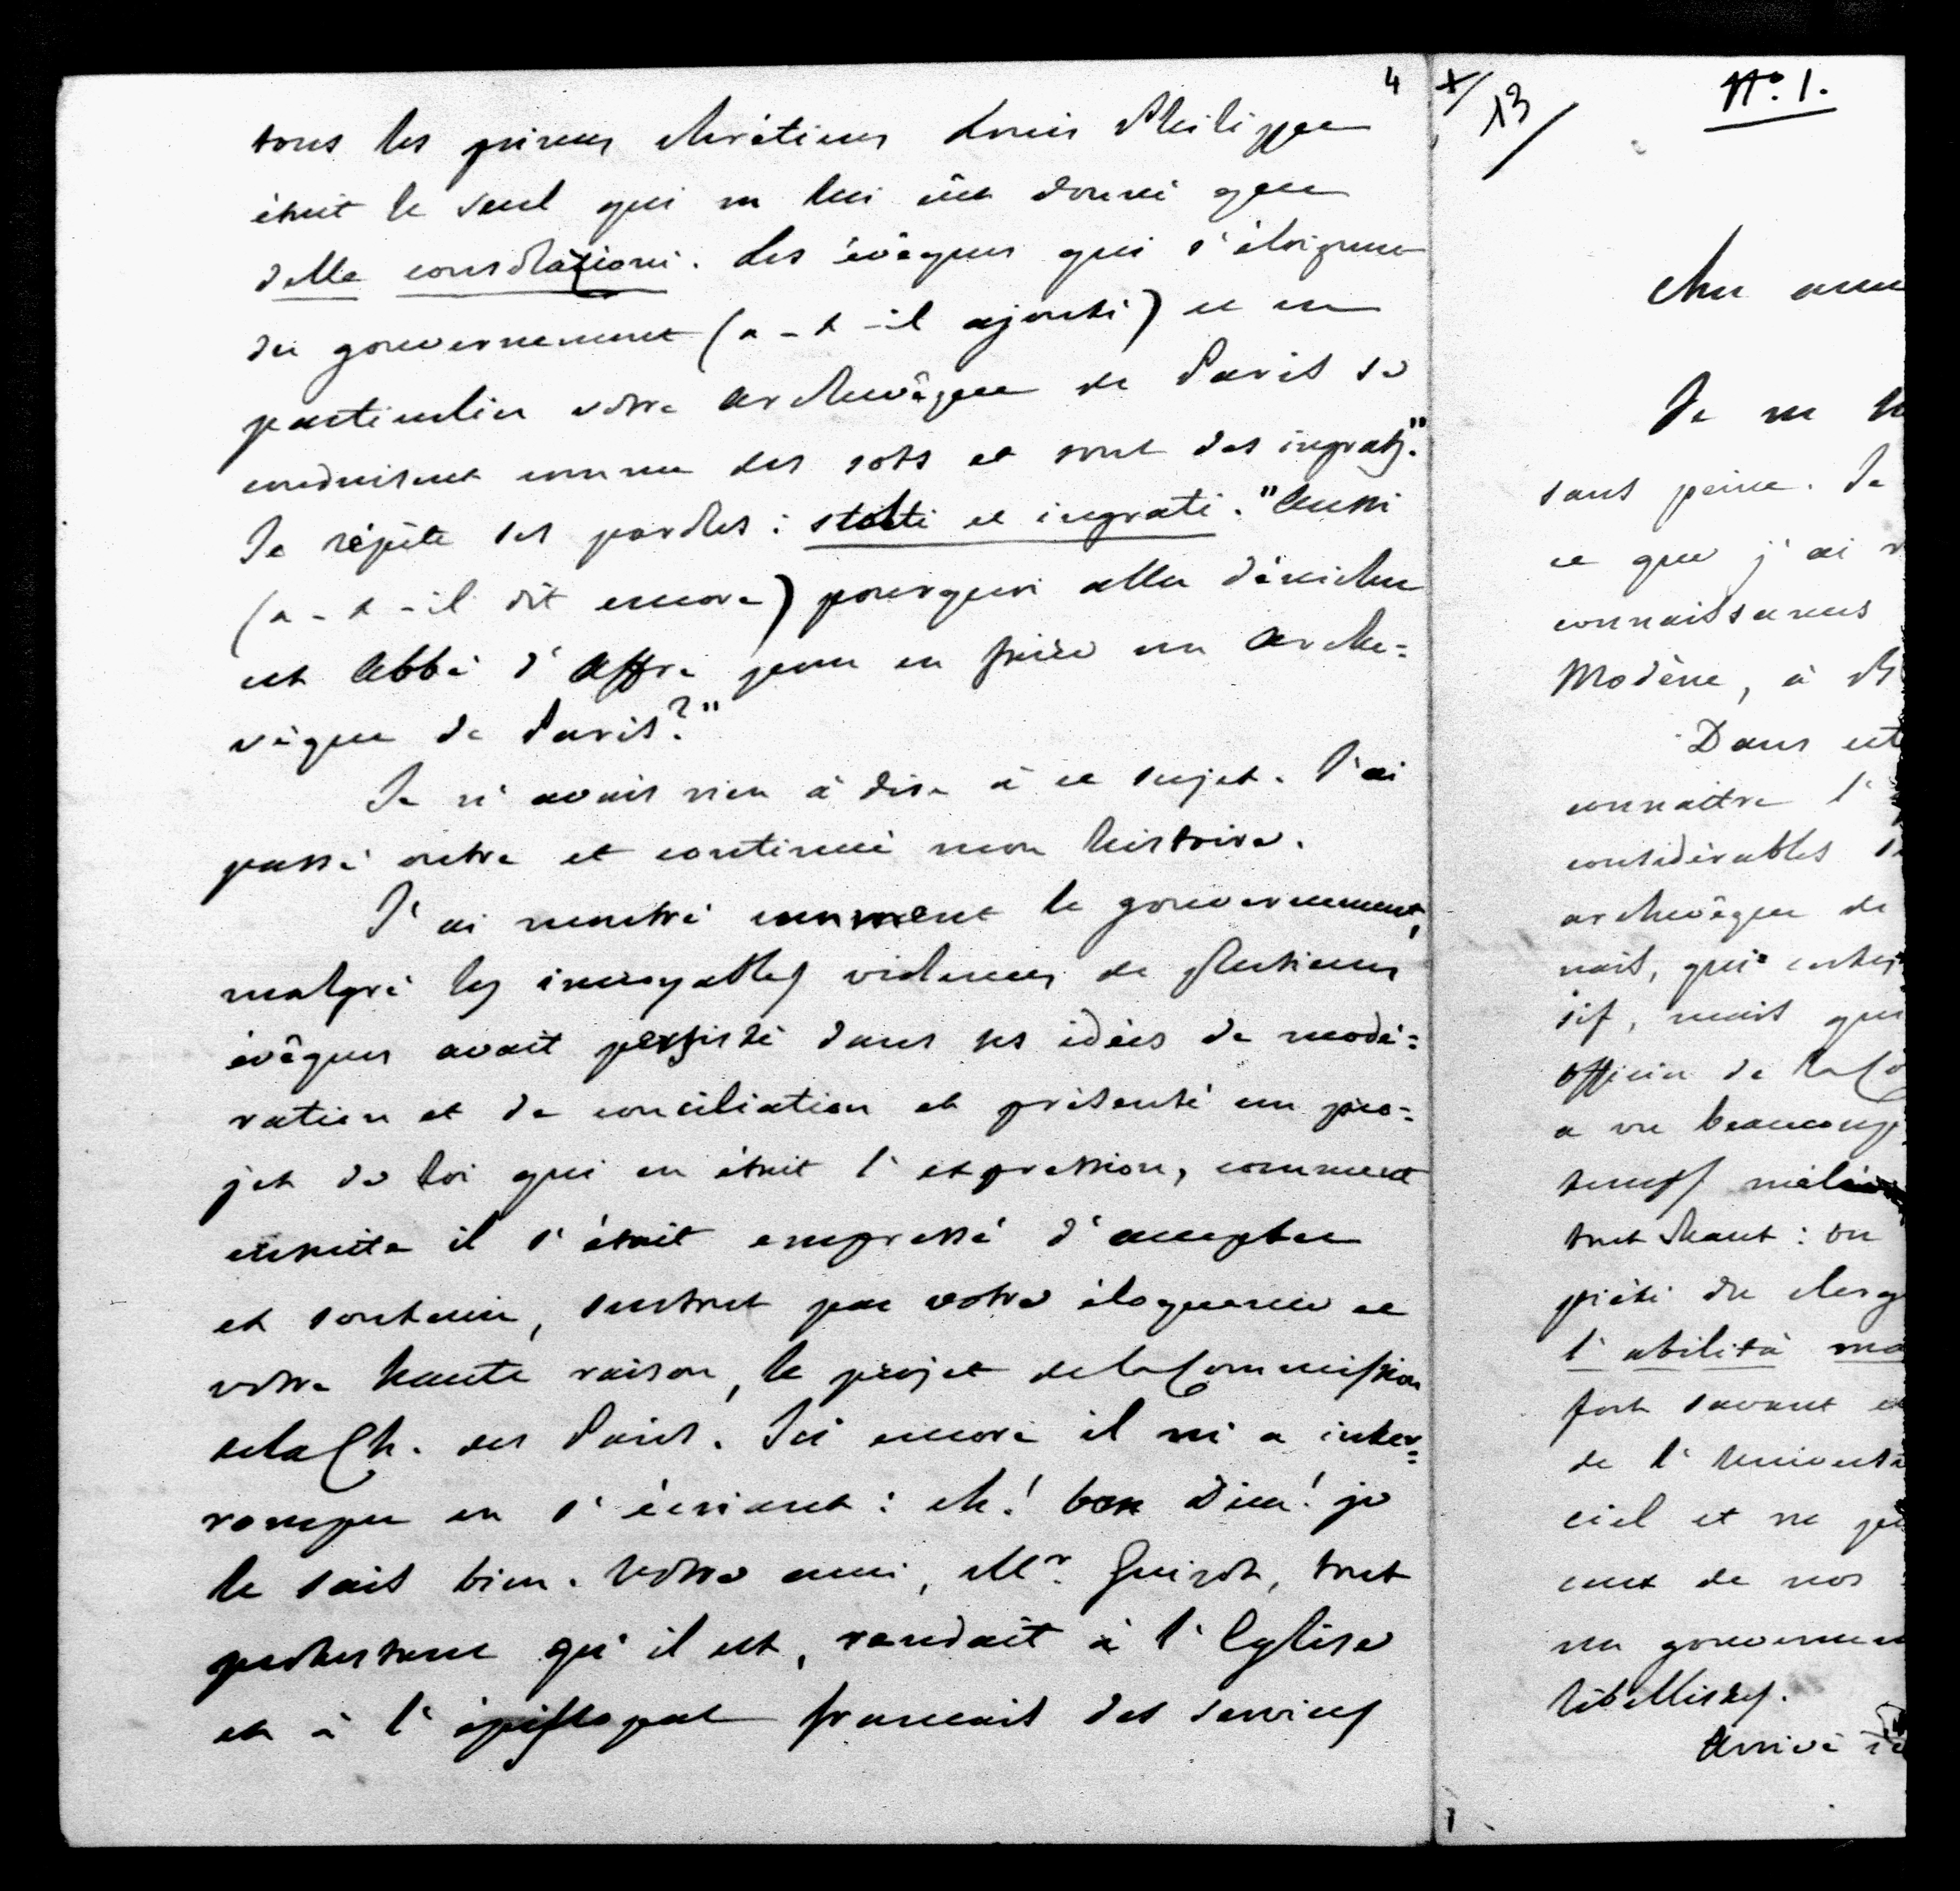 4
tous les princes chrétiens Louis Philippe
était le seul qui ne lui eût donné que
delle consolazioni. Les évêques qui s'éloignent
du gouvernement (a-t-il ajouté) et en
particulier votre archevêque de Paris se
conduisent comme des sots et sont des ingrats."
Je répète ses paroles: stolti e ingrati. "Aussi
(a-t-il dit encore) pourquoi aller dénicher
cet Abbé d'Affre pour en faire un Arche=
vêque de Paris?"
Je n'avais rien à dire à ce sujet. J'ai
passé outre et continué mon histoire.
J'ai montré comment le gouvernement,
malgré les incroyables violences de plusieurs
évêques avait persisté dans ses idées de modé=
ration et de conciliation et présenté un pro=
jet de loi qui en était l'expression, comment
ensuite il s'était empressé d'accepter
et soutenir, surtout par votre éloquence et
votre haute raison, le projet de la Commission
de la Ch. des Pairs. Ici encore il m'a inter=
rompu en s'écriant: eh! bon Dieu! je
le sais bien. Votre ami, Mr. Guizot, tout
protestant qu'il est, rendait à l'Eglise
et à l'épiscopat français des services
13
N°. 1.
Cher
Je ne
sans peine. Je
ce que j'ai
connaissances
Modène, à
Dans cet
connaître l'
considérables
archevêque de
nais, qui
sif, mais qui
officier de la
a vu beaucoup
temps
tout haut: on
piété du clerg
l'abilità
fort savant
de l'Universit
ciel et ne
eux de nos
un gouvernem
libellistes.
Arrivé